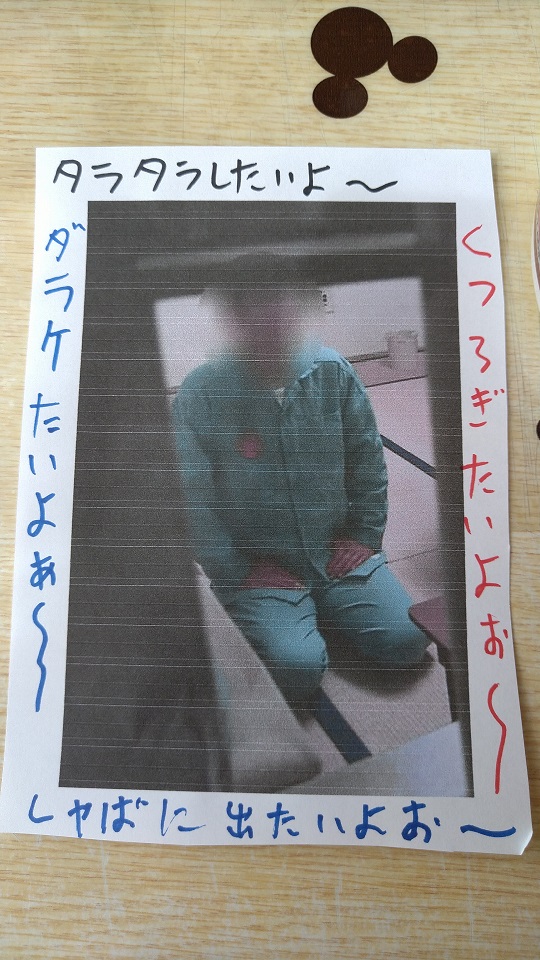 タラタラしたいよ〜
くつろぎたいよぉ〜
ダラケたいよぉ〜
しゃばに出たいよぉ〜